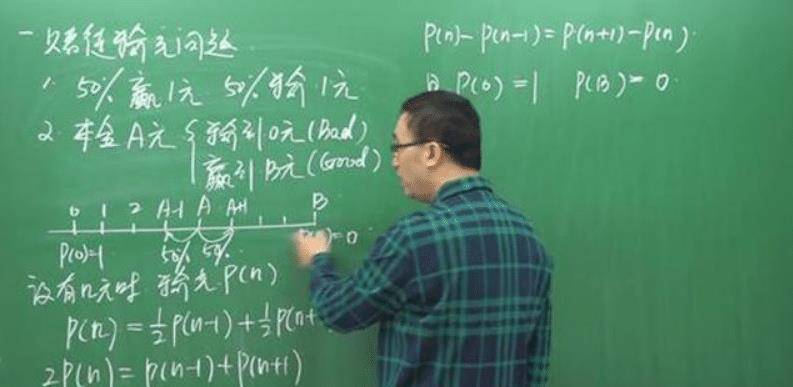 一 赌徒输光问题
1. 50% 赢1元 50% 输1元
2. 本金A元 { 输到0元(Bad)
赢到B元(Good)
0 1 2 A-1 A A+1 B
P(0)=1 50% 50% =0
设有n元时 输光P(n)
P(n) = ½P(n-1) + ½P(n+
2P(n) = P(n-1)+P(n+1)
P(n)-P(n-1)=P(n+1)-P(n)
P(0)=1 P(B)=0